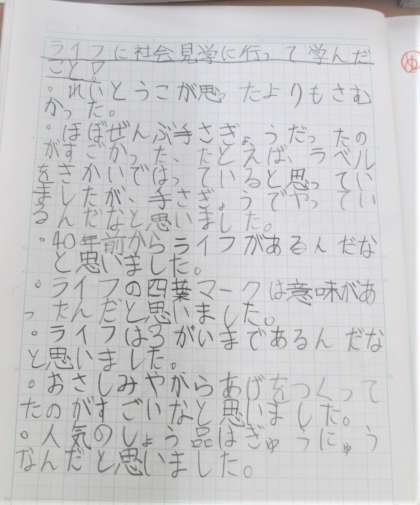 ライフに社会見学に行って学んだ
こと♡
。れいとうこが思ったよりもさむ
かった。
。ほぼぜんぶ手さぎょうだったの
がすごかった、たとえば、ラベル
をきかいではっていると思ってい
ましたが、手さぎょうでやってい
るんだなと思いました。
。40年前からライフがあるんだな
と思いました。
。ライフの四葉マークは意味があ
ったんだと思いました。
。ライフは3がいまであるんだな
と思いました。
。おさしみやからあげをつくって
たのがすごいなと思いました。
。人気のしょう品はぎゅうにゅう
なんだと思いました。